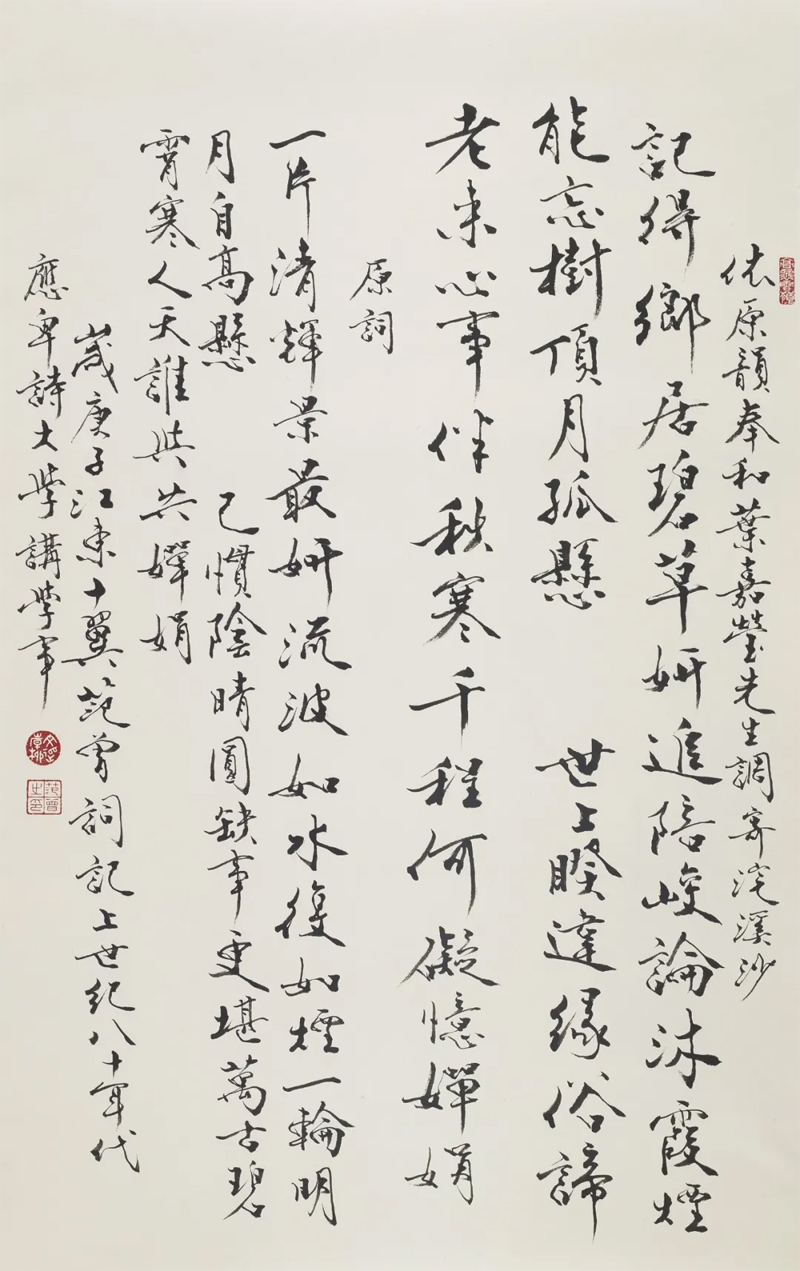 依原韻奉和葉嘉瑩先生調寄浣溪沙
記得鄉居碧草妍追陪峻論沐霞煙
能忘樹頂月孤懸　世上暌違緣俗諦
老來心事伴秋寒千程何礙憶嬋娟
原詞
一片清輝景最妍流波如水復如煙一輪明
月自高懸　已慣陰晴圓缺事更堪萬古碧
霄寒人天誰與共嬋娟
歲庚子江東十翼范曾詞記上世紀八十年代
應卑詩大學講學事
范曾之印